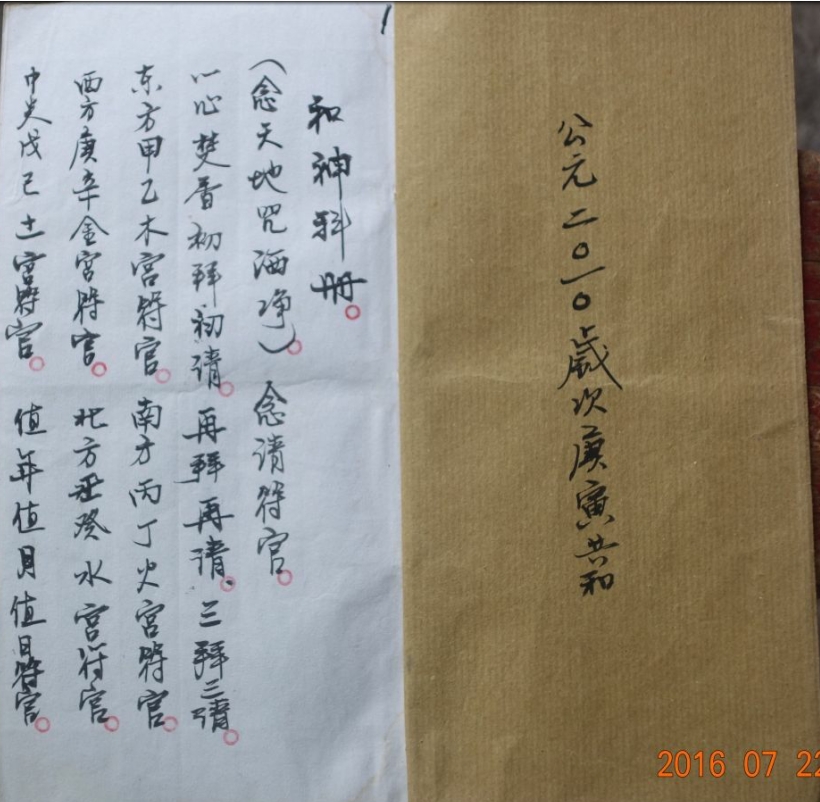 公元二〇一〇歲次庚寅共和
和神科册。
（念天地咒海净）。念请符官。
一心焚香初拜初请。再拜再请。三拜三请。
东方甲乙木宫符官。南方丙丁火宫符官。
西方庚辛金宫符官。北方壬癸水宫符官。
中央戊己土宫符官。值年值月值日符官。
2016 07 22